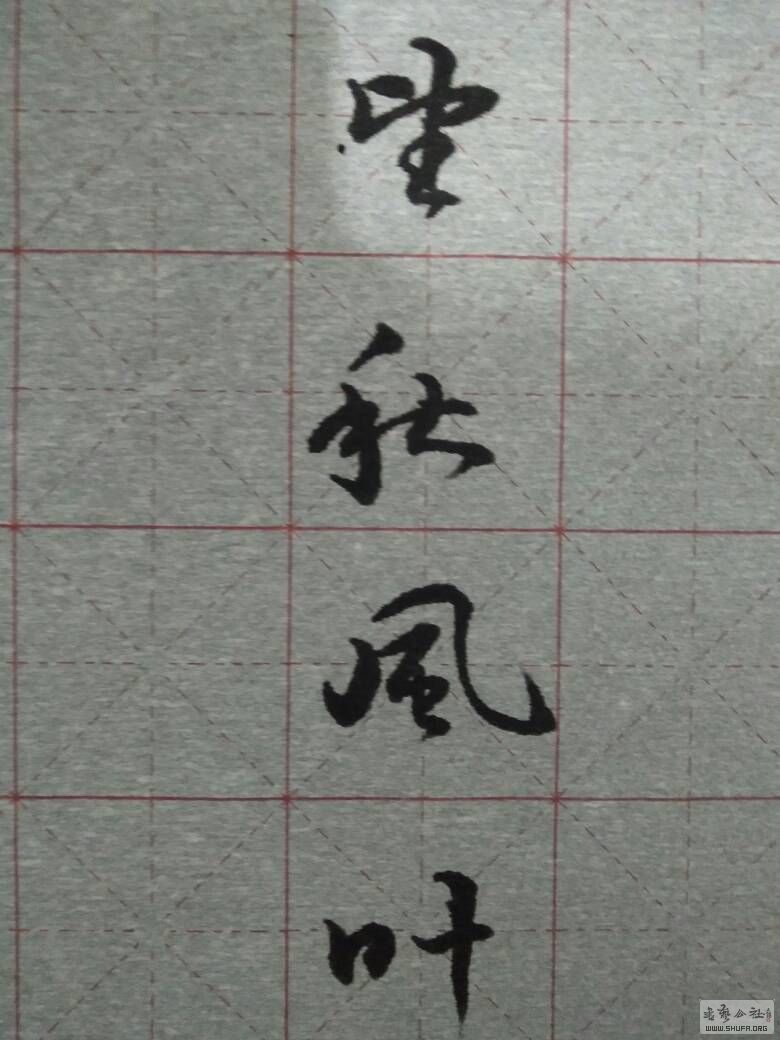 望
秋
風
叶
書藝公社
WWW.SHUFA.ORG